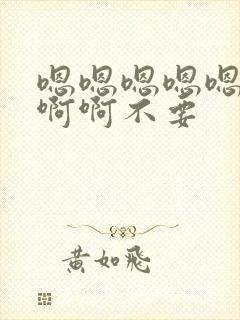 嗯嗯嗯嗯嗯
啊啊不要
黄如飛